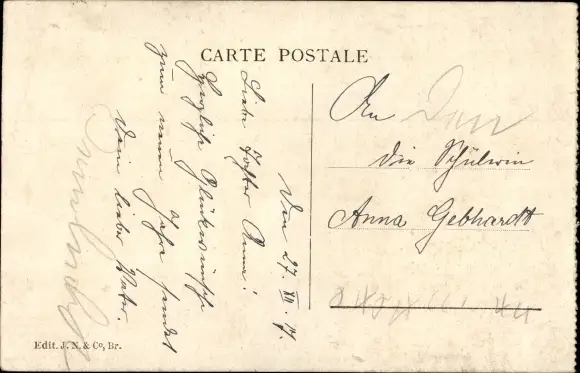 CARTE POSTALE
Den 27. XII. 17.
Liebe Tochter Anna!
Herzliche Glückwünsche
zum neuen Jahre sendet
Dein lieber Vater.
An
die Schülerin
Anna Gebhardt
Edit. J. N. & Co, Br.